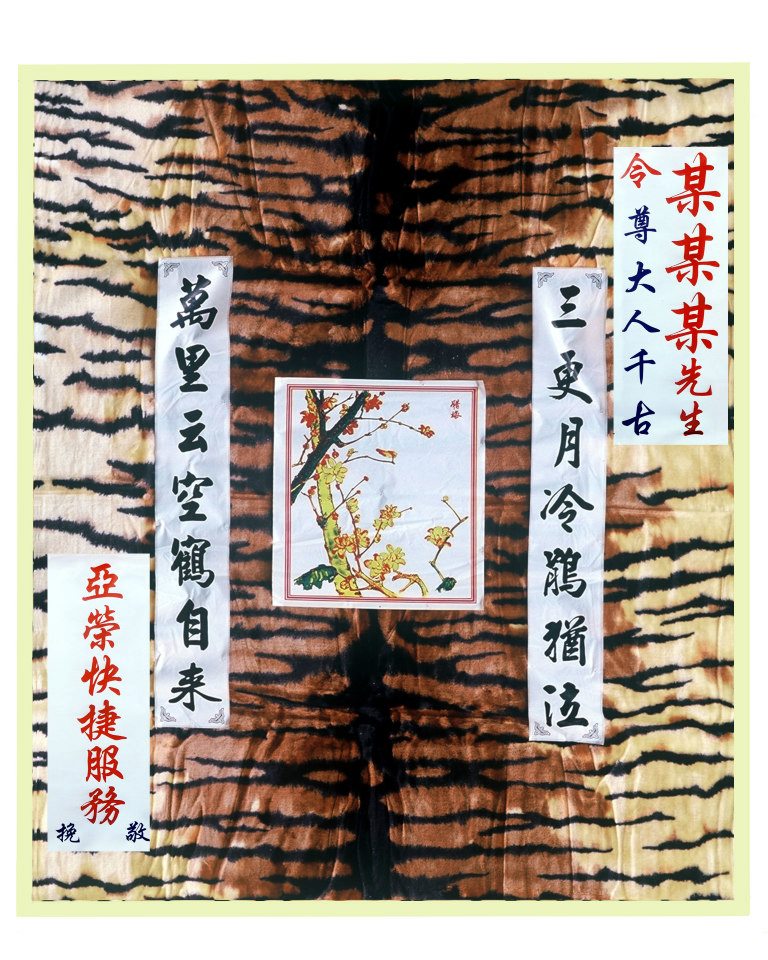 某某某先生
令尊大人千古
三更月冷鵑猶泣
腊梅
萬里云空鶴自来
亞榮快捷服務
敬挽